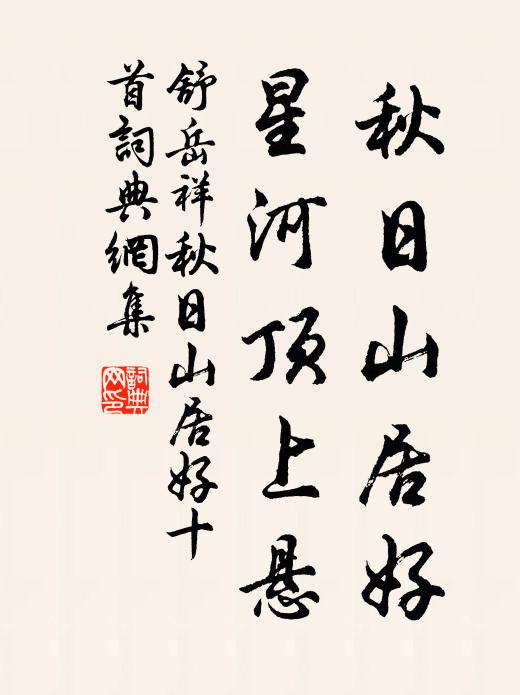 秋日山居好
星河顶上悬
舒岳祥秋日山居好十
首詞典網集
詞典
网印